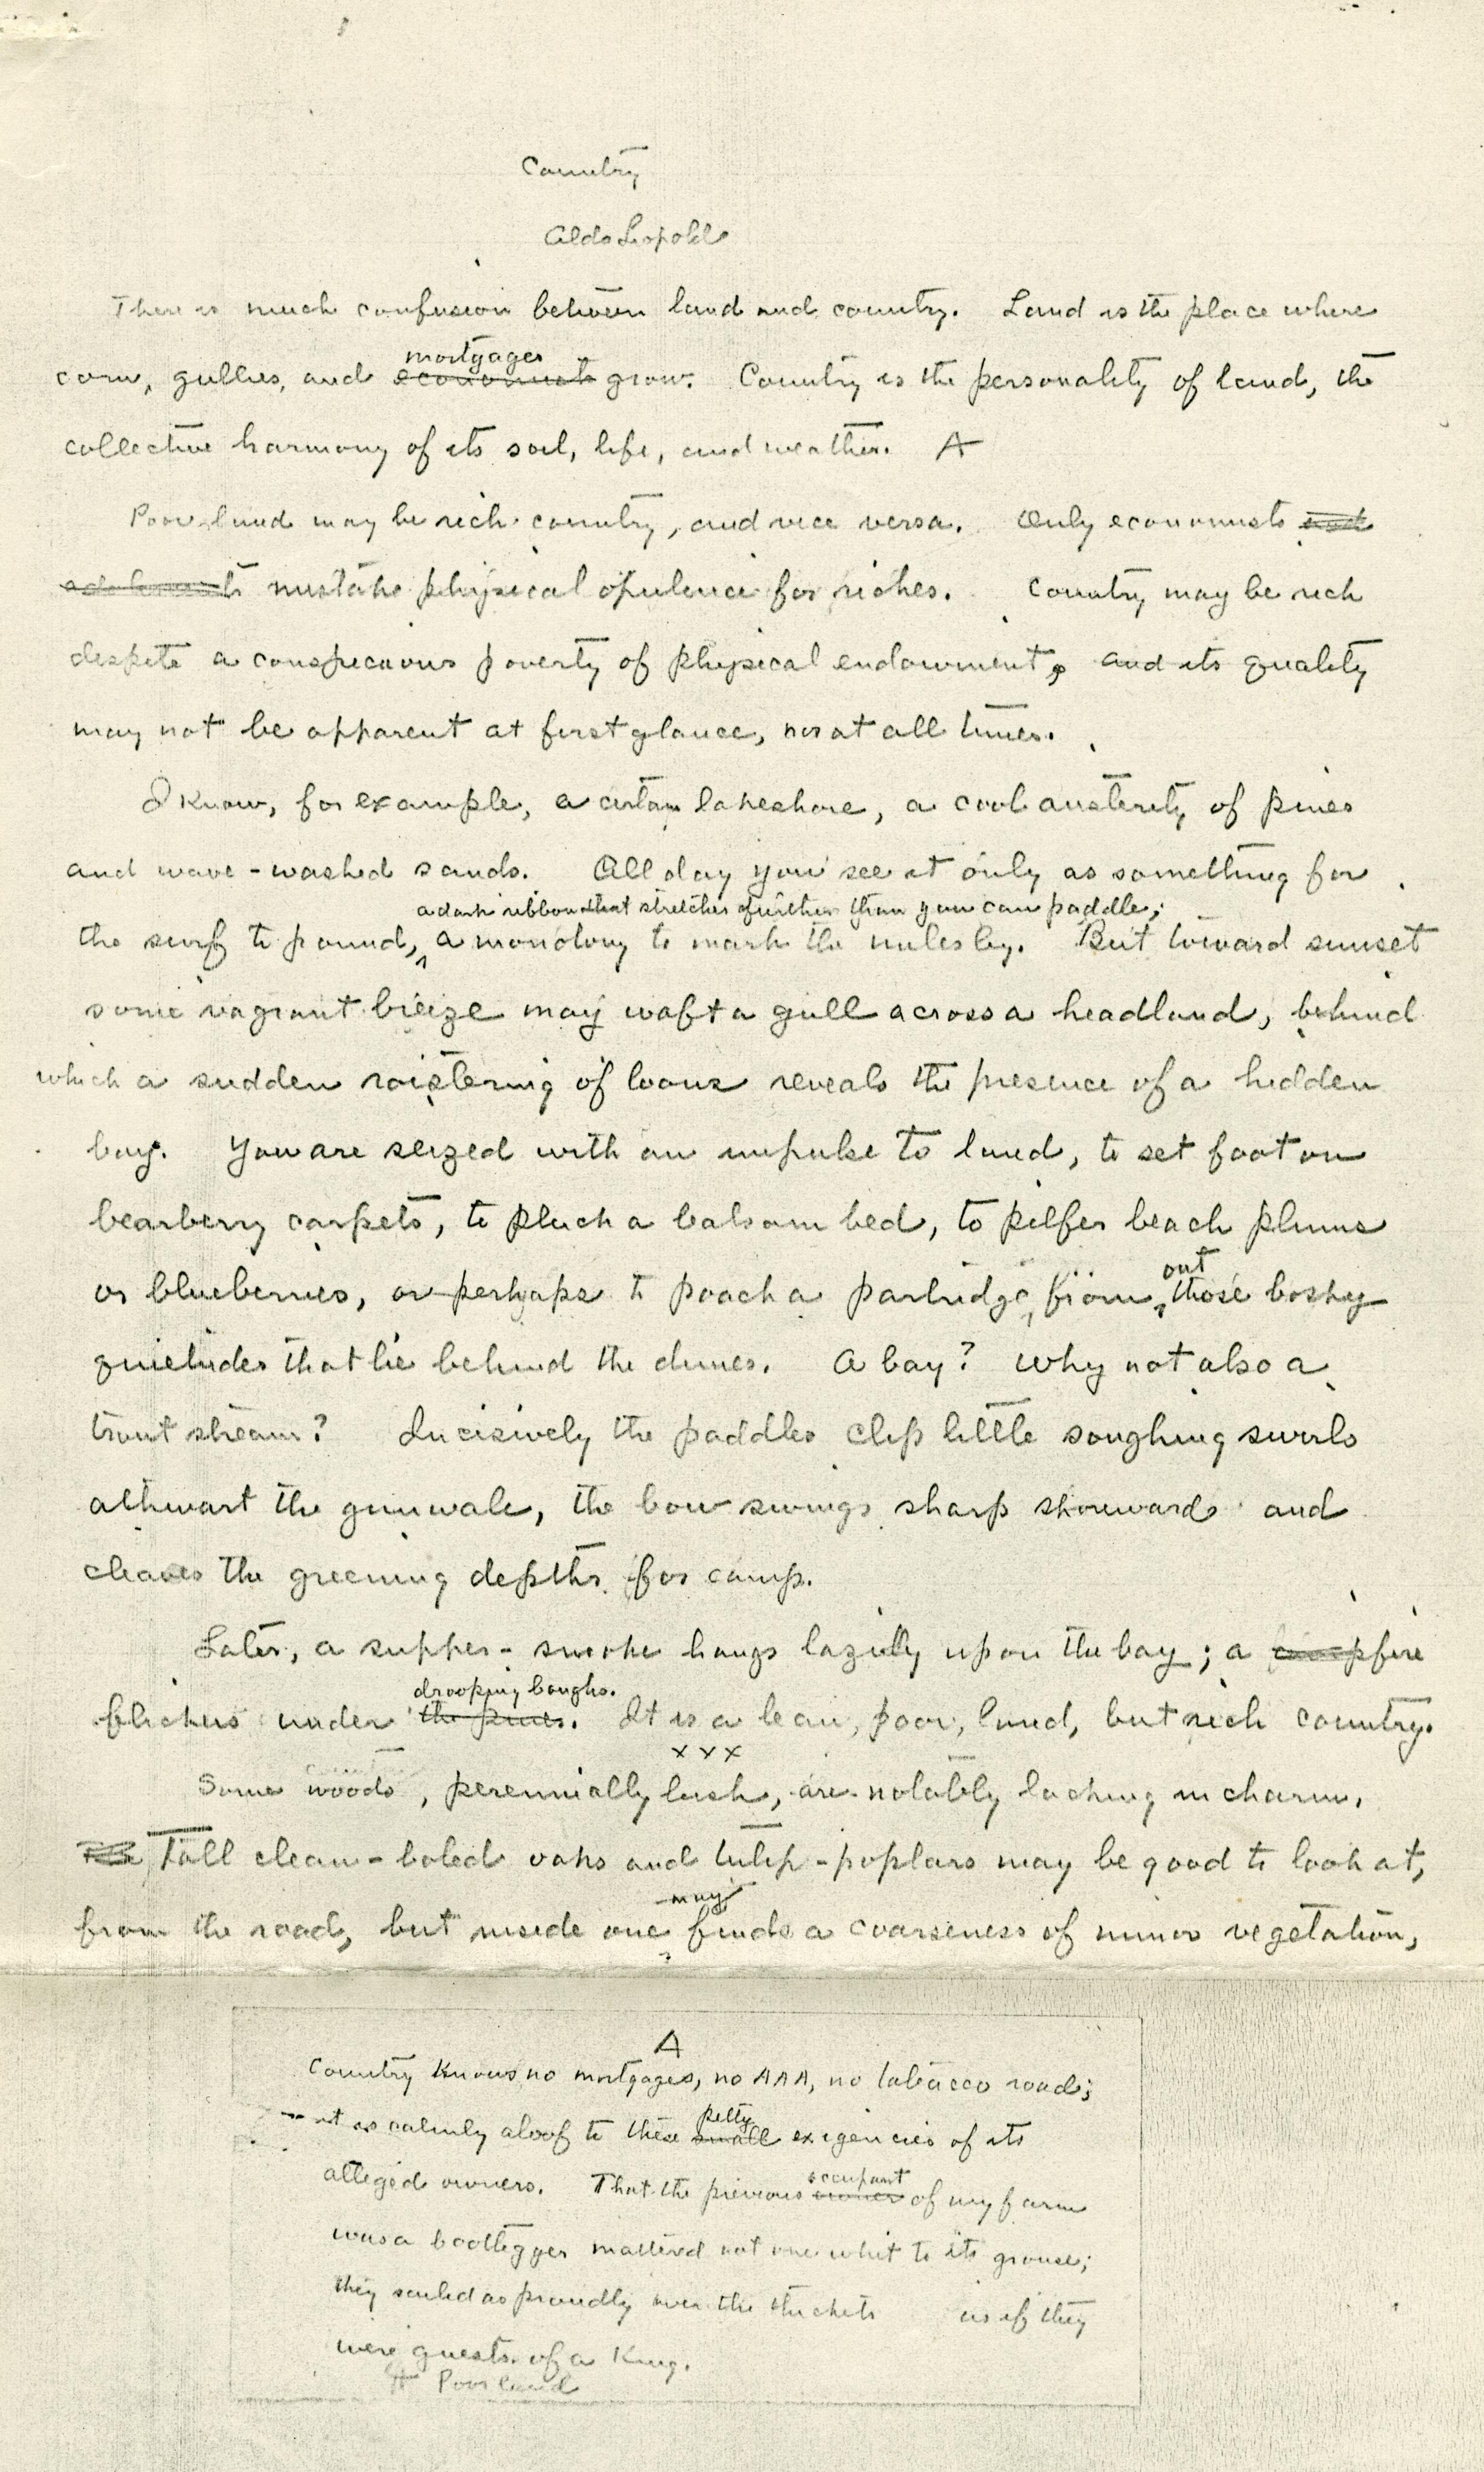 Country
Aldo Leopold
There is much confusion between land and country. Land is the place where
mortgages
corn, gullies, and economists grow. Country is the personality of land, the
collective harmony of its soil, life, and weather. A
Poor land may be rich country, and vice versa. Only economists and
mistake physical opulence for riches. Country may be rich
despite a conspicuous poverty of physical endowment, and its quality
may not be apparent at first glance, nor at all times.
I know, for example, a certain lakeshore, a cool austerity of pines
and wave-washed sands. All day you see it only as something for
a dark ribbon that stretches further than you can paddle;
the surf to pound, a monotony to mark the miles by. But toward sunset
some vagrant breeze may waft a gull across a headland, behind
which a sudden roistering of loons reveals the presence of a hidden
bay. You are seized with an impulse to land, to set foot on
bearberry carpets, to pluck a balsam bed, to pilfer beach plums
out
or blueberries, or perhaps to poach a partridge from those bosky
quietudes that lie behind the dunes. A bay? Why not also a
trout stream? Incisively the paddles clip little soughing swirls
athwart the gunwale, the bow swings sharp shoreward and
cleaves the greening depths for camp.
Later, a supper-smoke hangs lazily upon the bay; a campfire
drooping boughs.
flickers under the pines. It is a lean, poor, land, but rich country.
x x x
Some woods, perennially lush, are notably lacking in charm.
Tall clean-boled oaks and tulip-poplars may be good to look at,
may
from the road, but inside one finds a coarseness of minor vegetation,
A
Country knows no mortgages, no AAA, no tobacco road;
petty
it is calmly aloof to these small exigencies of its
occupant
alleged owners. That the previous owner of my farm
was a bootlegger mattered not one whit to its grouse;
they sailed as proudly over the thickets as if they
were guests of a King.
¶ Poor land